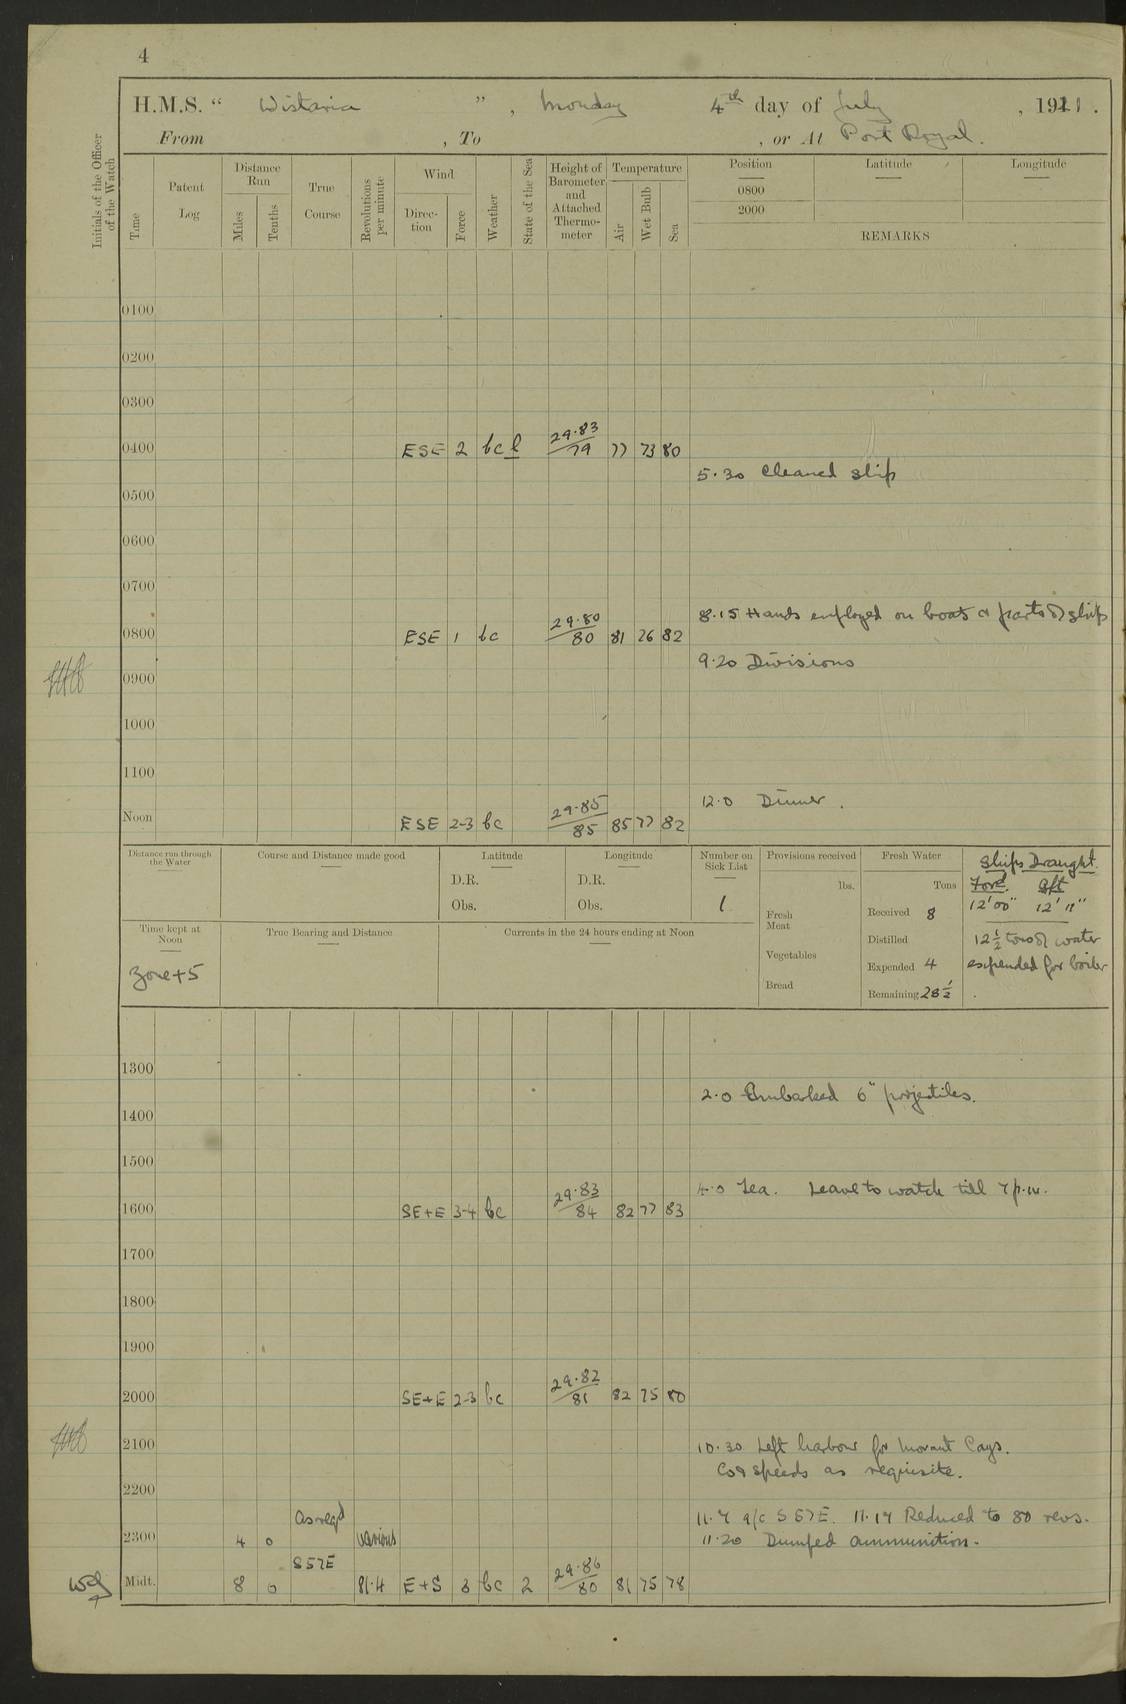 4
H.M.S. “ Wistaria ” , Monday 4th day of July , 1921 .
From , To , or At Port Royal.
Initials of the Officer of the Watch
Time
Patent Log
Distance Run
Miles
Tenths
True Course
Revolutions per minute
Wind
Direction
Force
Weather
State of the Sea
Height of Barometer and Attached Thermometer
Temperature
Air
Wet Bulb
Sea
Position Latitude Longitude
0800
2000
REMARKS
0100
0200
0300
0400 ESE 2 bcl 29.83/79 77 73 80
5.30 Cleaned ship
0500
0600
0700
8.15 Hands employed on boats & parts of ship
0800 ESE 1 bc 29.80/80 81 76 82
9.20 Divisions
0900
1000
1100
12.0 Dinner.
Noon ESE 2-3 bc 29.85/85 85 77 82
Distance run through the Water
Course and Distance made good
Latitude
D.R.
Obs.
Longitude
D.R.
Obs.
Number on Sick List
1
Provisions received
lbs.
Fresh Meat
Vegetables
Bread
Fresh Water
Tons
Received 8
Distilled
Expended 4
Remaining 28½
Ships Draught.
Ford. Aft
12'00" 12'11"
12½ tons of water
expended for boiler
Time kept at Noon
Zone+5
True Bearing and Distance
Currents in the 24 hours ending at Noon
1300
2.0 Embarked 6" projectiles.
1400
1500
4.0 Tea. Leave to watch till 7 p.m.
1600 SE+E 3-4 bc 29.83/84 82 77 83
1700
1800
1900
2000 SE+E 2-3 bc 29.82/81 82 75 80
2100
10.30 Left harbour for Morant Cays.
Co & speeds as requisite.
2200
11.7 a/c S57E. 11.17 Reduced to 80 revs.
2300 4 0 As reqd various
11.20 Dumped ammunition.
Midt. 8 0 S57E 81.4 E+S 3 bc 2 29.86/80 81 75 78